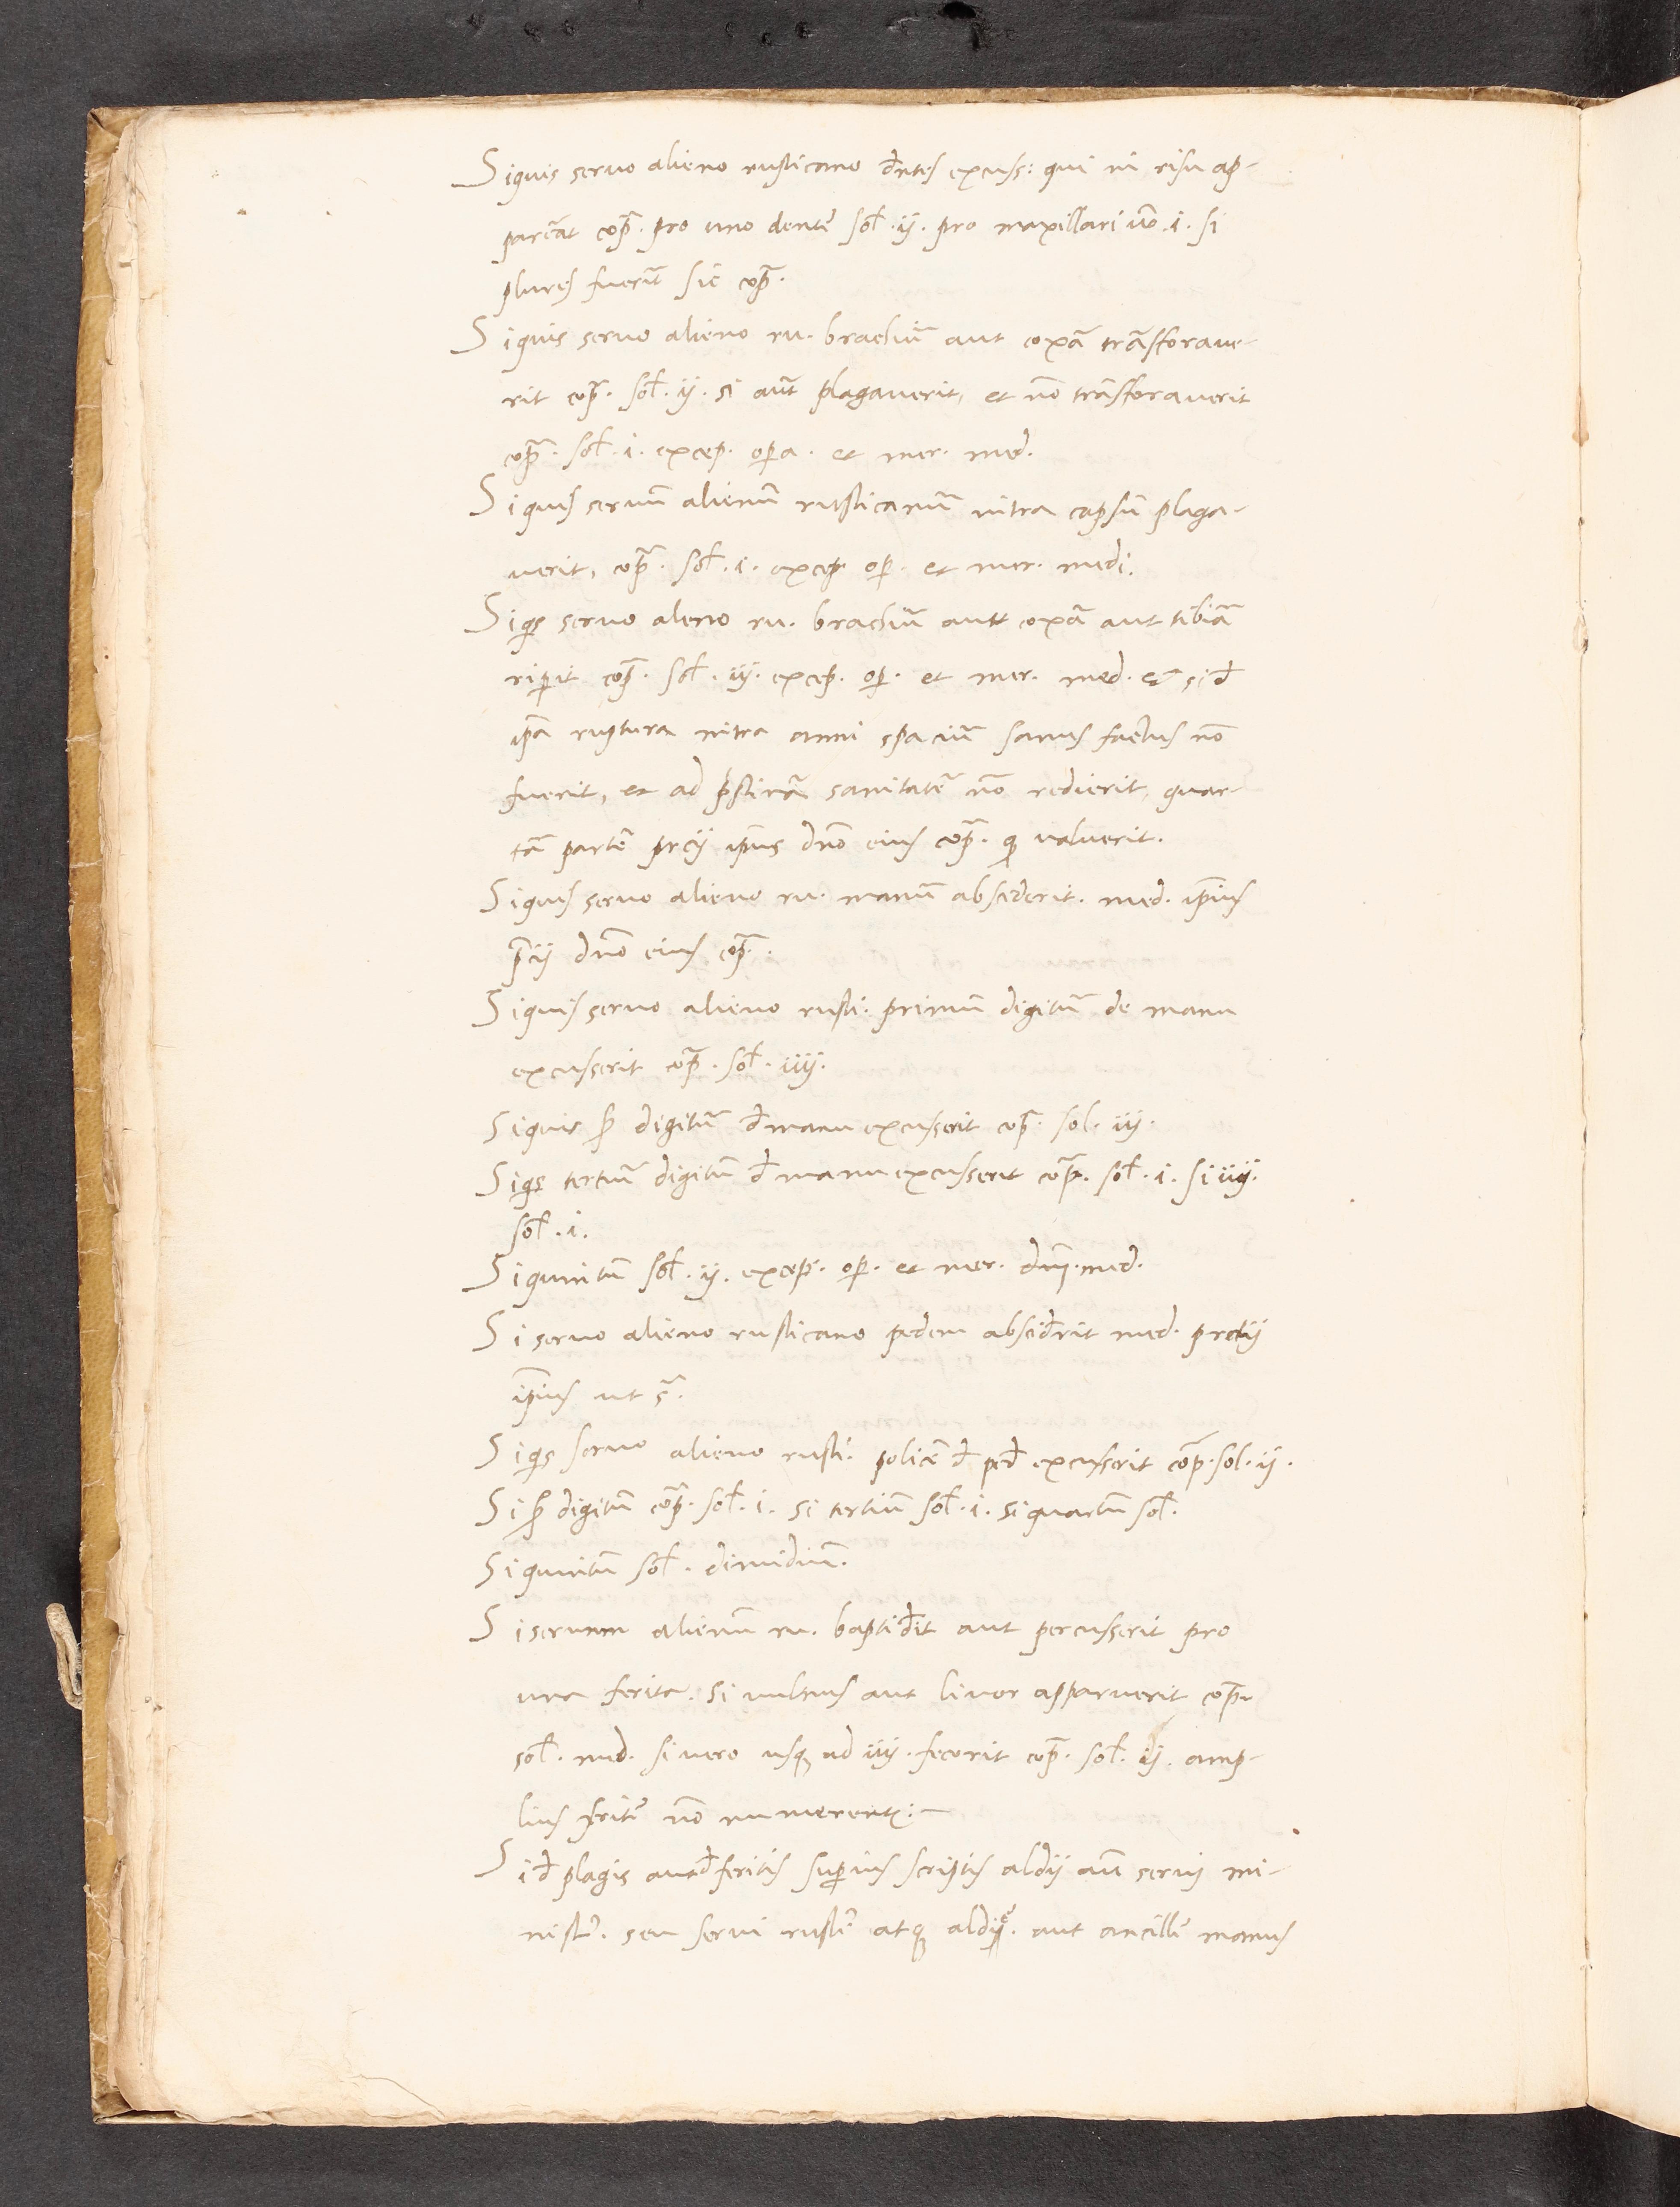 Siquis seruo alieno rusticano đntes excuss: qui in risu ap-
pareāt cōp̄. pro uno dente sol̄. ij. pro maxillari ūo. i. si
plures fuerīt sic cōp̄.
Siquis seruo alieno ru. brachiū aut coxā trāsforaue-
rit cōp̄. sol̄. ij. si aūt plagauerit, et nō trāsforauerit
cōp̄. sol̄. i. excep. oꝑa. et mer. med.
Siquis seruū alienū rusticanū intra capsū plaga-
uerit, cōp̄. sol̄. i. excep. oꝑ. et mer. medi.
Siqͥs seruo aleno ru. brachiū autt coxā aut tibiā
ruꝑit cōp̄. sol̄. iij. excep. oꝑ. et mer. med. et si đ
ip̄a ruptura intra anni spaciū sanus factus nō
fuerit, et ad pͥstinā sanitatē nō redierit, quar-
tā partē prcij ip̄ius dn̄o eius cōp̄. qͥ ualuerit.
Siquis seruo alieno ru. manū absciderit. med. ip̄ius
p̄cij dn̄o eius cōp̄.
Siquis seruo alieno rusti. primū digitū de manu
excusserit cōp̄. sol̄. iiij.
Siquis s̄ digitū đ manu excusserit cōp̄. sol. iij.
Siqͥs tertiū digitū đ manu excusserit cōp̄. sol̄. i. si iiij.
sol̄. i.
Si quintū sol̄. ij. excep. oꝑ. et mer. dn̄i. med.
Si seruo alieno rusticano pedem absciđrit med. pretij
ip̄ius ut sͣ.
Siqͥs seruo alieno rusti. policē đ peđ excusserit cōp̄. sol. ij.
Si s̄ digitū cōp̄. sol̄. i. si tertiū sol̄. i. si quartū sol̄.
Si quintū sol̄. dimidiū.
Si seruum alienū ru. baptiđit aut percusserit pro
una ferita. si uulnus aut liuor apparuerit cōp̄.
sol̄. med. si uero usqꝫ ad iiij. fecerit cōp̄. sol̄. ij. amp-
lius feritę nō numerentͬ:—
Si đ plagis aut đ feritis suꝑius scriptis aldij aut̄ seruj mi-
nistͬ. seu serui rustͥ atqꝫ aldię. aut ancillę manus